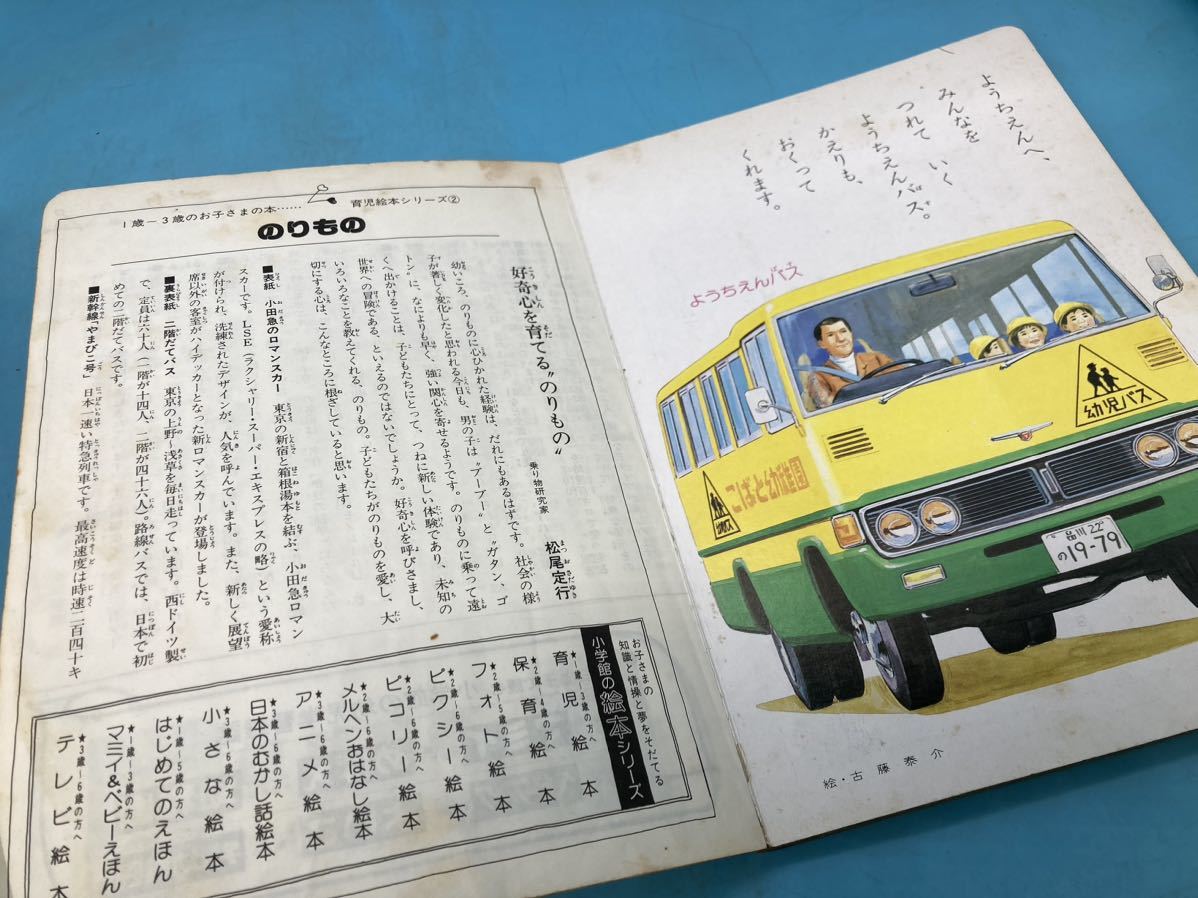 1歳－3歳のお子さまの本……
育児絵本シリーズ②
のりもの
好奇心を育てる〝のりもの〟
乗り物研究家 松尾定行
幼いころ、のりものに心ひかれた経験は、だれにもあるはずです。社会の様
子が著しく変化したと思われる今日も、男の子は〝ブーブー〟と〝ガタン、ゴ
トン〟に、なによりも早く、強い関心を寄せるようです。のりものに乗って遠
くへ出かけることは、子どもたちにとって、つねに新しい体験であり、未知の
世界への冒険である、といえるのではないでしょうか。好奇心を呼びさまし、
いろいろなことを教えてくれる、のりもの。子どもたちがのりものを愛し、大
切にする心は、こんなところに根ざしていると思います。
■表紙 小田急のロマンスカー 東京の新宿と箱根湯本を結ぶ、小田急ロマン
スカーです。LSE（ラクシャリー・スーパー・エキスプレスの略）という愛称
が付けられ、洗練されたデザインが、人気を呼んでいます。また、新しく展望
席以外の客室がハイデッカーとなった新ロマンスカーが登場しました。
■裏表紙 二階だてバス 東京の上野〜浅草を毎日走っています。西ドイツ製
で、定員は六十人（一階が十四人、二階が四十六人）。路線バスでは、日本で初
めての二階だてバスです。
■新幹線「やまびこ号」 日本一速い特急列車です。最高速度は時速二百四十キ
お子さまの
知識と情操と夢をそだてる
小学館の絵本シリーズ
★1歳-3歳の方へ
育児絵本
★2歳-4歳の方へ
保育絵本
★2歳-5歳の方へ
フォト絵本
★2歳-6歳の方へ
ピクシー絵本
★2歳-6歳の方へ
ピコリー絵本
★2歳-6歳の方へ
メルヘンおはなし絵本
★3歳-6歳の方へ
アニメ絵本
★3歳-6歳の方へ
日本のむかし話絵本
★3歳-6歳の方へ
小さな絵本
★1歳-5歳の方へ
はじめてのえほん
★1歳-3歳の方へ
マミイ&ベビーえほん
★3歳-6歳の方へ
テレビ絵本
ようちえんへ、
みんなを
つれて いく
ようちえんバス。
かえりも、
おくって
くれます。
ようちえんバス
幼児バス
こばと幼稚園
幼児バス
品川22
の 19-79
絵・古藤泰介